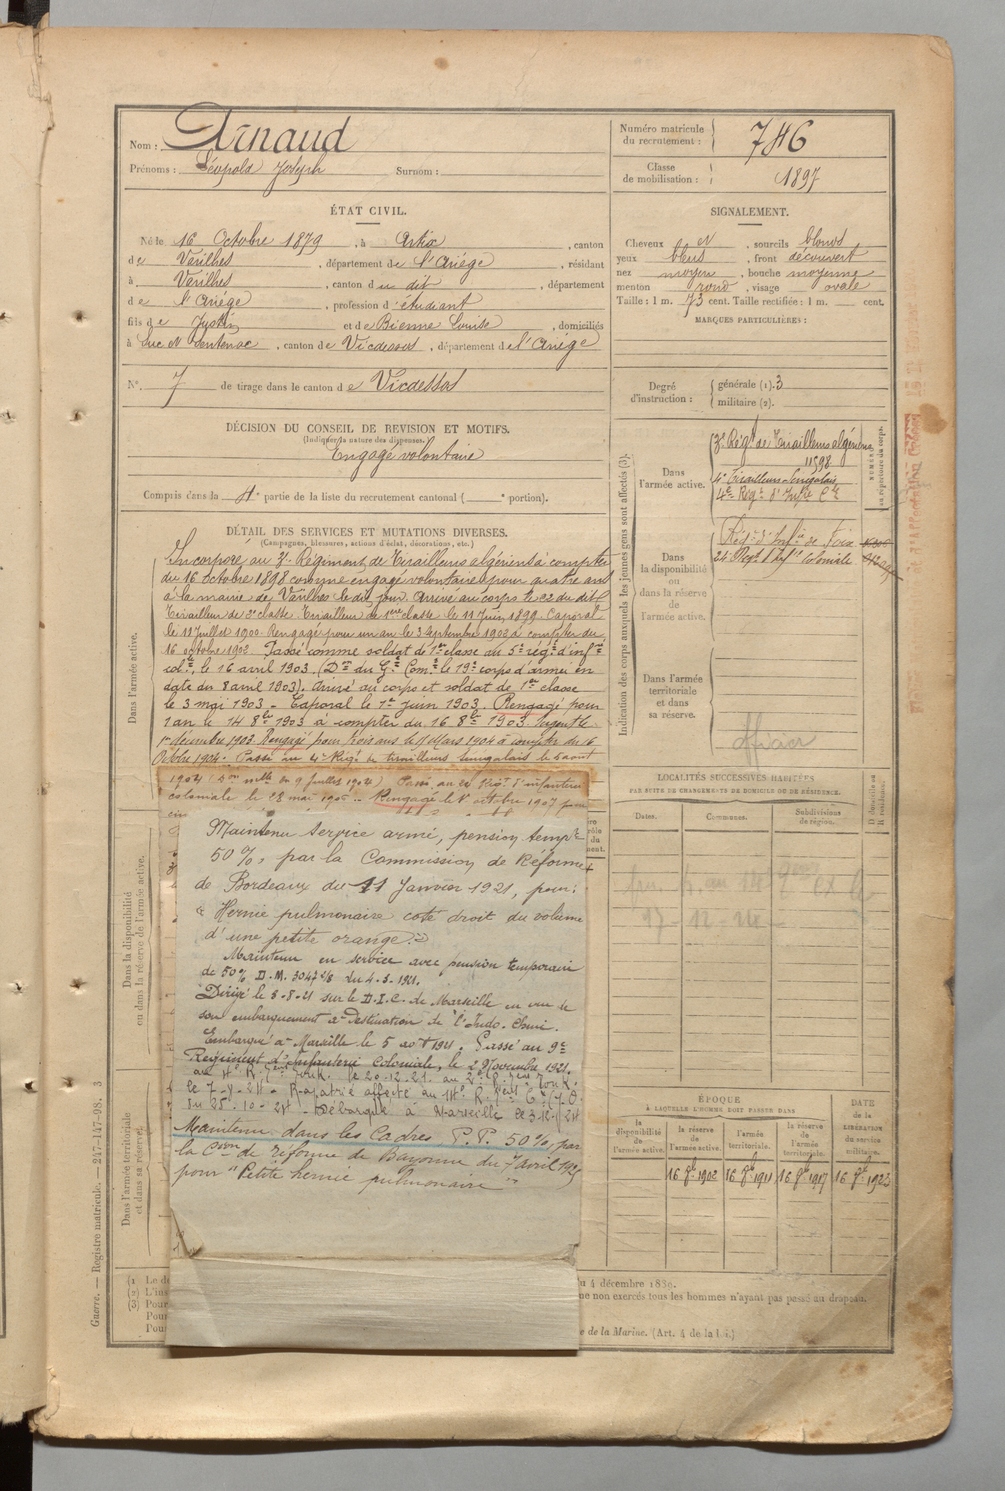 Nom : Arnaud
Prénoms : Léopold Joseph Surnom :
Numéro matricule
du recrutement : 746
Classe
de mobilisation : 1897
ÉTAT CIVIL.
Né le 16 Octobre 1879, à Artix, canton
de Varilhes, département de l'Ariége, résidant
à Varilhes, canton du dit, département
de l'Ariége, profession d'étudiant
fils de Justin et de Bienne Louise, domiciliés
à Suc et Sentenac, canton de Vicdessos, département de l'Ariége
N° 7 de tirage dans le canton de Vicdessos
SIGNALEMENT.
Cheveux et, sourcils blonds
yeux bleus, front découvert
nez moyen, bouche moyenne
menton rond, visage ovale
Taille : 1 m. 73 cent. Taille rectifiée : 1 m. cent.
MARQUES PARTICULIÈRES :
Degré
d'instruction :
générale (1). 3
militaire (2).
DÉCISION DU CONSEIL DE REVISION ET MOTIFS.
(Indiquer la nature des dispenses.)
Engagé volontaire
Compris dans la 4e partie de la liste du recrutement cantonal ( e portion).
DÉTAIL DES SERVICES ET MUTATIONS DIVERSES.
(Campagnes, blessures, actions d'éclat, décorations, etc.)
Incorporé au 3e Régiment de Tirailleurs algériens à compter
du 16 Octobre 1898 comme engagé volontaire pour quatre ans
à la mairie de Varilhes le dit jour. Arrivé au corps le 22 du dit
Tirailleur de 2e classe. Tirailleur de 1ère classe le 11 Juin 1899. Caporal
le 11 Juillet 1900. Rengagé pour un an le 3 Septembre 1902 à compter du
16 octobre 1902. Passé comme soldat d'1re classe au 5e rég.t d'inf.rie
col.le, le 16 avril 1903. (D.on du G.l Com.t le 19e corps d'armée en
date du 8 avril 1903). Arrivé au corps et soldat de 1re classe
le 3 mai 1903. Caporal le 1er juin 1903. Rengagé pour
1 an le 14 8bre 1903 à compter du 16 8bre 1903. Sergent le
1er décembre 1903. Rengagé pour trois ans le 11 Mars 1904 à compter du 16
Octobre 1904. Passé au 4e Rég. de tirailleurs sénégalais le 5 aout
1904 ( du 9 juillet 1904) Passé au 24e Rég.t d'infanterie
coloniale le 28 mai 1906. Rengagé le 8 octobre 1907 pour
Maintenu service armé, pension temp.re
50%, par la Commission de Réforme
de Bordeaux du 11 Janvier 1921, pour :
"Hernie pulmonaire coté droit du volume
d'une petite orange."
Maintenu en service avec pension temporaire
de 50% D.M. 3047 du 4.3.1921.
Dirigé le 3-8-21 sur le D.I.C. de Marseille en vue de
son embarquement à destination de l'Indo-Chine.
Embarqué à Marseille le 5 août 1921. Passé au 9e
Régiment d'Infanterie Coloniale, le 2 Novembre 1921.
au 4e R. Tonk. le 20-12-21. au 2e R. Tonk.
le 7-4-24 - Rapatrié affecté au
du 25-10-24 - Débarqué à Marseille le 3-12-24
Maintenu dans les Cadres P.T. 50% par
la C.on de réforme de Bayonne du 7 avril 1925
pour "Petite hernie pulmonaire"
Dans l'armée active.
Dans la disponibilité
ou dans la réserve de l'armée active.
Dans l'armée territoriale
et dans sa réserve.
Guerre. — Registre matricule. — 247-147-98. 3
Indication des corps auxquels les jeunes gens sont affectés (3).
Dans
l'armée active.
3e Rég.t de Tirailleurs algériens
11598
4e Tirailleurs Sénégalais
NUMÉROS
au répertoire du corps.
Dans
la disponibilité
ou
dans la réserve
de
l'armée active.
Rég.t d'Inf.rie de Foix
24e Reg.t d'Inf.ie Coloniale
Dans l'armée
territoriale
et dans
sa réserve.
officier
LOCALITÉS SUCCESSIVES HABITÉES
PAR SUITE DE CHANGEMENTS DE DOMICILE OU DE RÉSIDENCE.
Dates. Communes. Subdivisions
de région.
D domicile ou
R résidence.
17-12-24
ÉPOQUE
À LAQUELLE L'HOMME DOIT PASSER DANS
DATE
de la
LIBÉRATION
du service
militaire.
la
disponibilité
de
l'armée active.
la réserve
de
l'armée active.
l'armée
territoriale.
la réserve
de
l'armée
territoriale.
16 8bre 1902 16 8bre 1911 16 8bre 1917 16 8bre 1923
(1 Le de
(2) L'ins
(3) Pour
Pour
du 4 décembre 1889.
ne non exercés tous les hommes n'ayant pas passé au drapeau.
e de la Marine. (Art. 4 de la loi.)